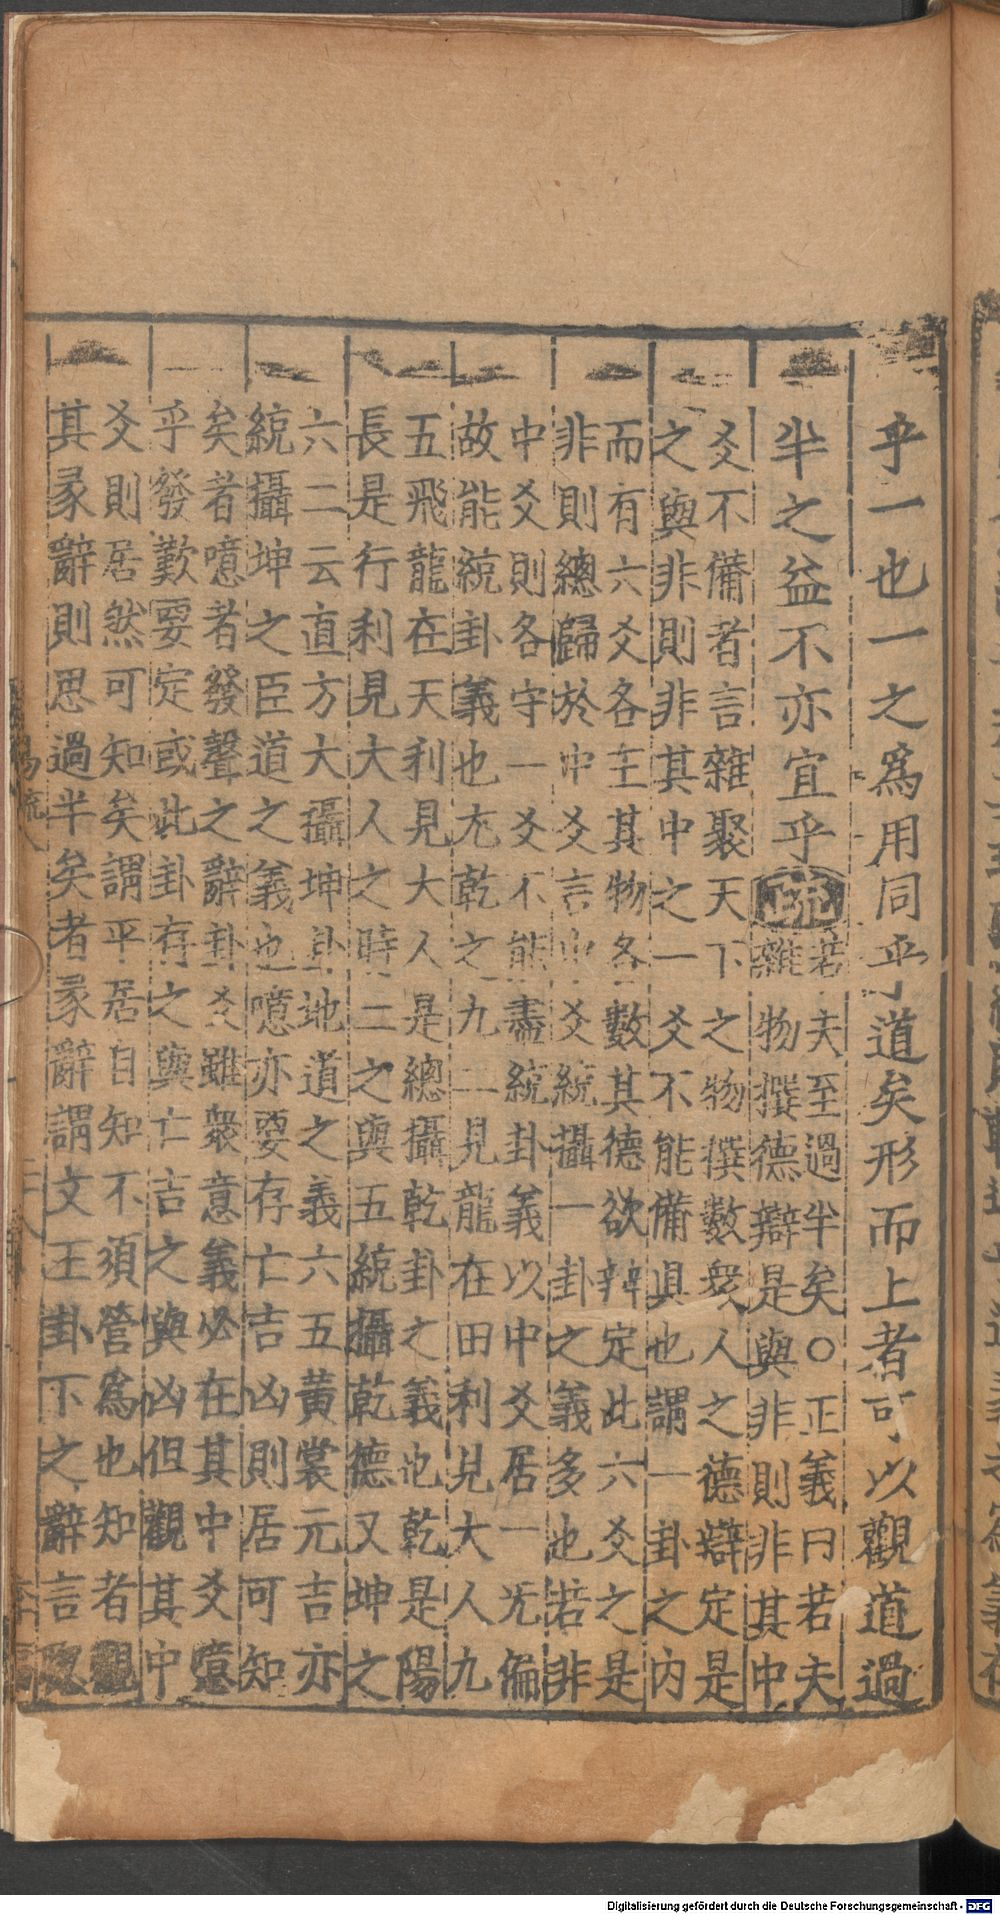 乎一也一之爲用同乎道矣形而上者可以觀道過
半之益不亦宜乎疏若夫至過半矣○正義曰若夫
雜物撰德辯是與非則非其中
爻不備者言雜聚天下之物撰數衆人之德辯定是
之與非則非其中之一爻不能備具也謂一卦之内
而有六爻各主其物各數其德欲辨定此六爻之是
非則總歸於中爻言中爻統攝一卦之義多也若非
中爻則各守一爻不能盡統卦義以中爻居一无偏
故能統卦義也尢乾之九二見龍在田利見大人九
五飛龍在天利見大人是總攝乾卦之義也乾是陽
長是行利見大人之時二之與五統攝乾德又坤之
六二云直方大攝坤卦地道之義六五黃裳元吉亦
統攝坤之臣道之義也噫亦要存亡吉凶則居可知
矣者噫者發聲之辭卦爻雖衆意義必在其中爻意
乎發歎要定或此卦存之與亡吉之與凶但觀其中
爻則居然可知矣謂平居自知不須營爲也知者觀
其彖辭則思過半矣者彖辭謂文王卦下之辭言聦
易疏八
二八
Digitalisierung gefördert durch die Deutsche Forschungsgemeinschaft - DFG